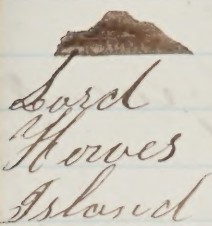 Lord
Howes
Island